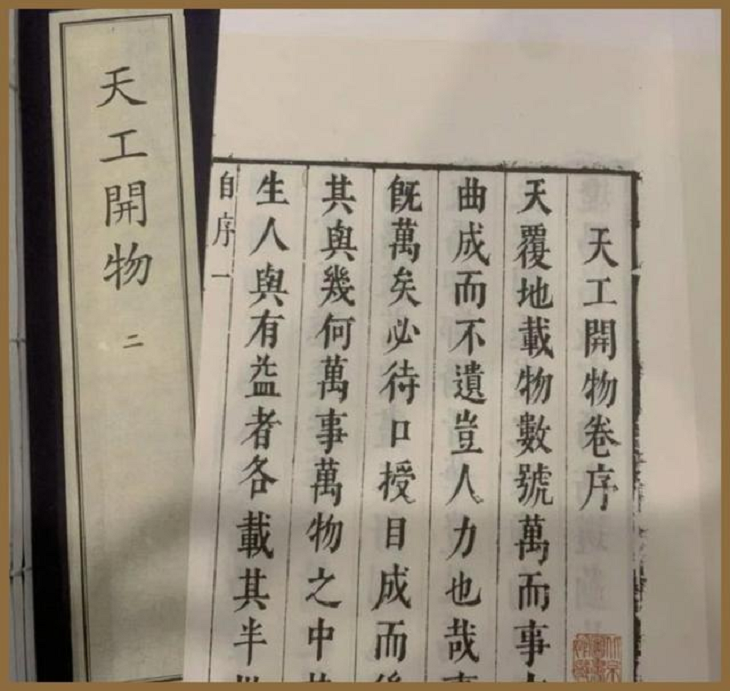 天工開物卷序
天覆地載物數號萬而事
曲成而不遺豈人力也哉事
旣萬矣必待口授目成而後
其與幾何萬事萬物之中
生人與有益者各載其半
自序 一
天工開物 二